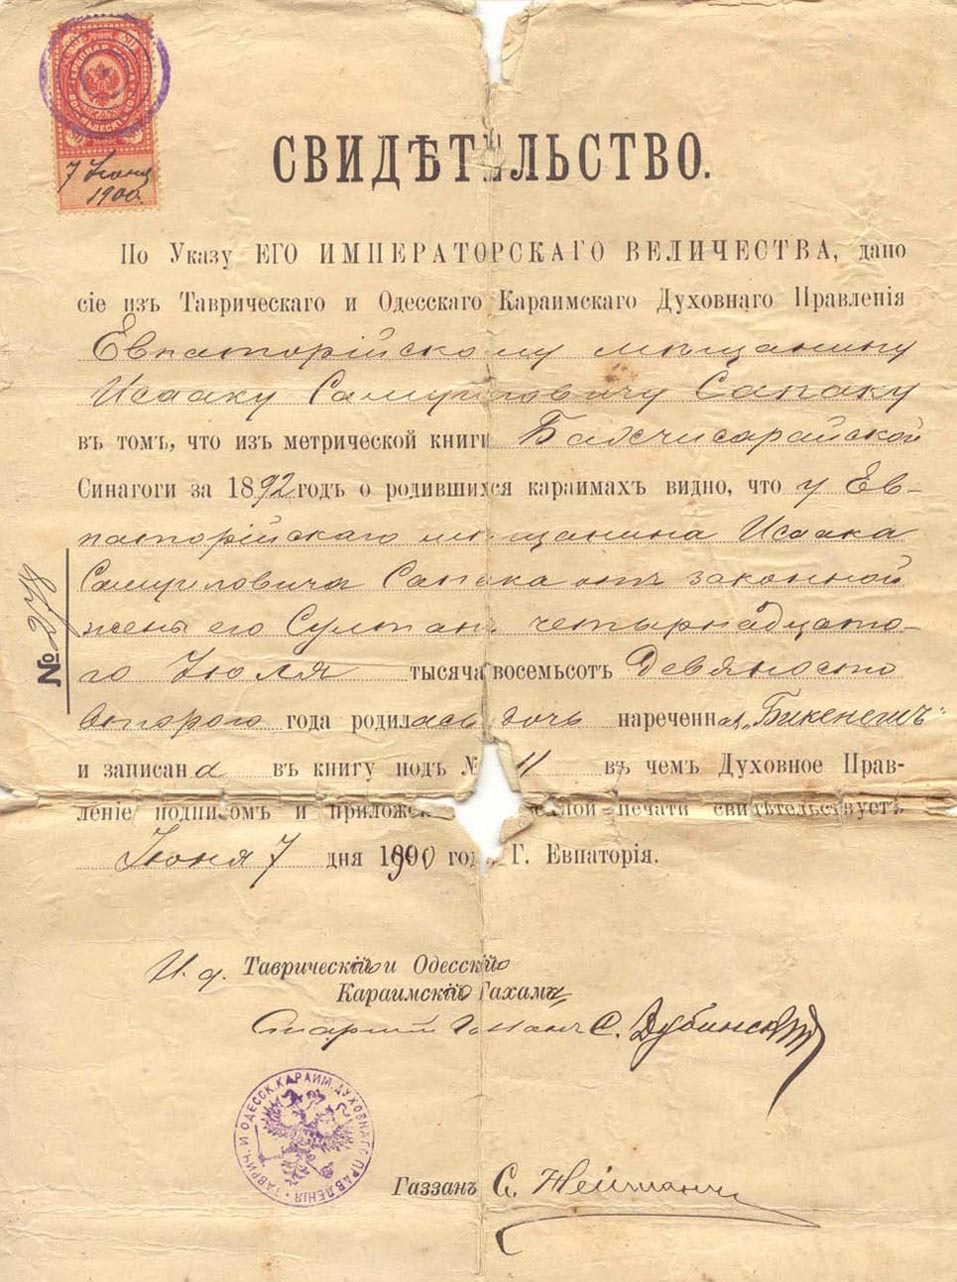 ГЕРБОВАЯ МАРКА
ВОСЕМЬДЕСЯТЪ КОП.
7 Іюня
1900.
СВИДѢТЕЛЬСТВО.
По Указу ЕГО ИМПЕРАТОРСКАГО ВЕЛИЧЕСТВА, дано
сіе изъ Таврическаго и Одесскаго Караимскаго Духовнаго Правленія
Евпаторійскому мѣщанину
Исааку Самуиловичу Сапаку
въ томъ, что изъ метрической книги Бахчисарайской
Синагоги за 1892 годъ о родившихся караимахъ видно, что у Ев-
паторійскаго мѣщанина Исаака
Самуиловича Сапака отъ законной
жены его Султанъ четырнадцато-
го Іюля тысяча восемьсотъ девяносто
второго года родилась дочь нареченная „Бикенешъ“
и записана въ книгу подъ № 11 въ чемъ Духовное Прав-
леніе подписомъ и приложе ной печати свидѣтельствуетъ
Іюня 7 дня 1900 год Г. Евпаторія.
№ 278
И. д. Таврическій и Одесскій
Караимскій Гахама
Старшій Газзанъ С. Дубинскій
ТАВРИЧ. И ОДЕССК. КАРАИМ. ДУХОВНАГО ПРАВЛЕНІЯ
Газзанъ С. Нейманъ